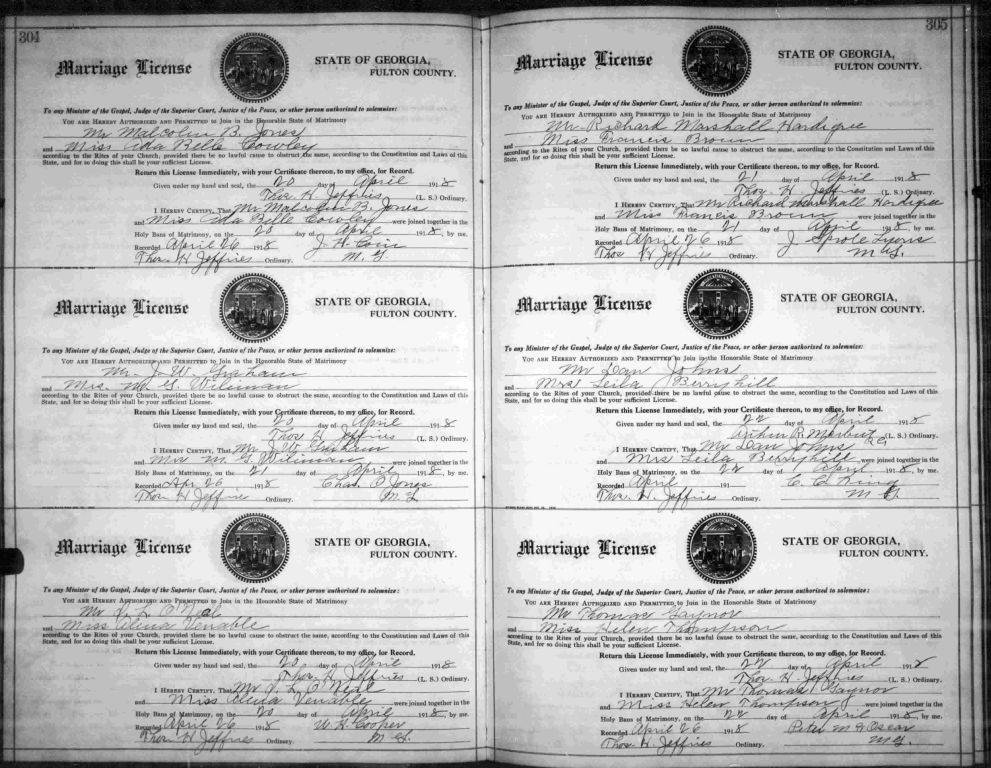 304
Marriage License
STATE OF GEORGIA,
FULTON COUNTY.
To any Minister of the Gospel, Judge of the Superior Court, Justice of the Peace, or other person authorized to solemnize:
YOU ARE HEREBY AUTHORIZED AND PERMITTED to Join in the Honorable State of Matrimony
Mr Malcolm B. Jones
and Miss Ada Belle Cowley
according to the Rites of your Church, provided there be no lawful cause to obstruct the same, according to the Constitution and Laws of this
State, and for so doing this shall be your sufficient License.
Return this License Immediately, with your Certificate thereon, to my office, for Record.
Given under my hand and seal, the 20 day of April 1918
Thos. H. Jeffries (L. S.) Ordinary.
I HEREBY CERTIFY, That Mr Malcolm B. Jones
and Miss Ada Belle Cowley were joined together in the
Holy Bans of Matrimony, on the 20 day of April 1918, by me.
Recorded April 26 1918 J. H.
Thos H Jeffries Ordinary. M. G.
Marriage License
STATE OF GEORGIA,
FULTON COUNTY.
To any Minister of the Gospel, Judge of the Superior Court, Justice of the Peace, or other person authorized to solemnize:
YOU ARE HEREBY AUTHORIZED AND PERMITTED to Join in the Honorable State of Matrimony
Mr. J. W. Graham
and Mrs. M. G.
according to the Rites of your Church, provided there be no lawful cause to obstruct the same, according to the Constitution and Laws of this
State, and for so doing this shall be your sufficient License.
Return this License Immediately, with your Certificate thereon, to my office, for Record.
Given under my hand and seal, the 20 day of April 1918
Thos H Jeffries (L. S.) Ordinary.
I HEREBY CERTIFY, That Mr J. W. Graham
and M. G. were joined together in the
Holy Bans of Matrimony, on the 21 day of April 1918, by me.
Recorded Apr 26 1918 Chas. O Jones
Thos H Jeffries Ordinary. M. G.
Marriage License
STATE OF GEORGIA,
FULTON COUNTY.
To any Minister of the Gospel, Judge of the Superior Court, Justice of the Peace, or other person authorized to solemnize:
YOU ARE HEREBY AUTHORIZED AND PERMITTED to Join in the Honorable State of Matrimony
Mr J. L. O'Neal
and Miss Alma Venable
according to the Rites of your Church, provided there be no lawful cause to obstruct the same, according to the Constitution and Laws of this
State, and for so doing this shall be your sufficient License.
Return this License Immediately, with your Certificate thereon, to my office, for Record.
Given under my hand and seal, the 20 day of April 1918
Thos. H. Jeffries (L. S.) Ordinary.
I HEREBY CERTIFY, That Mr J. L. O'Neal
and Miss Alma Venable were joined together in the
Holy Bans of Matrimony, on the 20 day of April 1918, by me.
Recorded April 26 1918 W. H. Cooper
Thos H Jeffries Ordinary. M. G.
305
Marriage License
STATE OF GEORGIA,
FULTON COUNTY.
To any Minister of the Gospel, Judge of the Superior Court, Justice of the Peace, or other person authorized to solemnize:
YOU ARE HEREBY AUTHORIZED AND PERMITTED to Join in the Honorable State of Matrimony
Mr. Richard Marshall Hardigree
and Miss Francis Brown
according to the Rites of your Church, provided there be no lawful cause to obstruct the same, according to the Constitution and Laws of this
State, and for so doing this shall be your sufficient License.
Return this License Immediately, with your Certificate thereon, to my office, for Record.
Given under my hand and seal, the 21 day of April 1918
Thos. H Jeffries (L. S.) Ordinary.
I HEREBY CERTIFY, That Mr Richard Marshall Hardigree
and Miss Francis Brown were joined together in the
Holy Bans of Matrimony, on the 21 day of April 1918, by me.
Recorded April 26 1918 J. Sprole Lyons
Thos H Jeffries Ordinary. M G.
Marriage License
STATE OF GEORGIA,
FULTON COUNTY.
To any Minister of the Gospel, Judge of the Superior Court, Justice of the Peace, or other person authorized to solemnize:
YOU ARE HEREBY AUTHORIZED AND PERMITTED to Join in the Honorable State of Matrimony
Mr Dan Johns
and Mrs Leila Berryhill
according to the Rites of your Church, provided there be no lawful cause to obstruct the same, according to the Constitution and Laws of this
State, and for so doing this shall be your sufficient License.
Return this License Immediately, with your Certificate thereon, to my office, for Record.
Given under my hand and seal, the 22 day of April 1918
Arthur R. Marbut (L. S.) Ordinary.
I HEREBY CERTIFY, That Mr Dan Johns
and Mrs Leila Berryhill were joined together in the
Holy Bans of Matrimony, on the 22 day of April 1918, by me.
Recorded April 191 King
Thos. H. Jeffries Ordinary. M G.
Marriage License
STATE OF GEORGIA,
FULTON COUNTY.
To any Minister of the Gospel, Judge of the Superior Court, Justice of the Peace, or other person authorized to solemnize:
YOU ARE HEREBY AUTHORIZED AND PERMITTED to Join in the Honorable State of Matrimony
Mr Thomas Gaynor
and Miss Helen Thompson
according to the Rites of your Church, provided there be no lawful cause to obstruct the same, according to the Constitution and Laws of this
State, and for so doing this shall be your sufficient License.
Return this License Immediately, with your Certificate thereon, to my office, for Record.
Given under my hand and seal, the 22 day of April 1918
Thos H Jeffries (L. S.) Ordinary.
I HEREBY CERTIFY, That Mr Thomas Gaynor
and Miss Helen Thompson were joined together in the
Holy Bans of Matrimony, on the 22 day of April 1918, by me.
Recorded April 26 1918 Peter M H
Thos H. Jeffries Ordinary. M G.